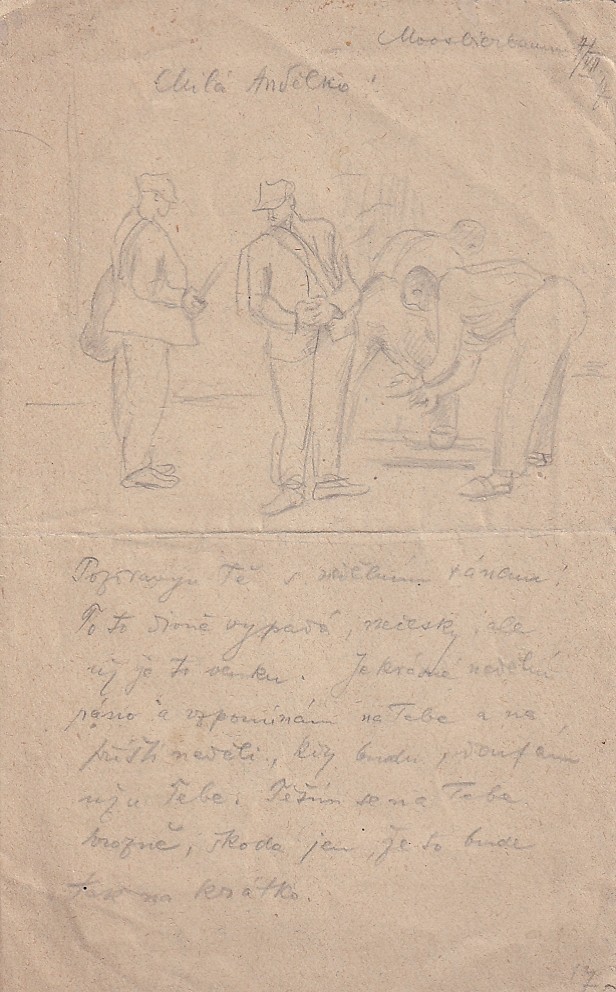 Moosbierbaum 7/VII
Milá Andělko!
Pozdravuji Tě s nedělním ránem!
To to divně vypadá, nečesky, ale
už je to venku. Je krásné nedělní
ráno a vzpomínám na Tebe a na
příští neděli, kdy budu, doufám
už u Tebe. Těším se na Tebe
hrozně, škoda jen, že to bude
tak na krátko.